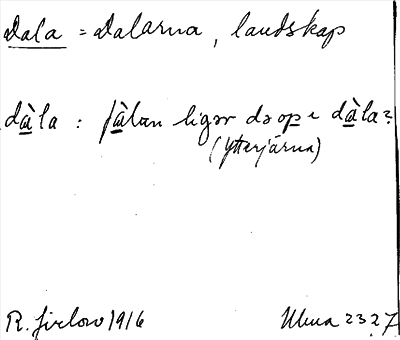 Dala = Dalarna, landskap
dàla : fàlan ligər dəop i dàla?
(Ytterjärna)
R. Jirlow 1916 Ulma 2327